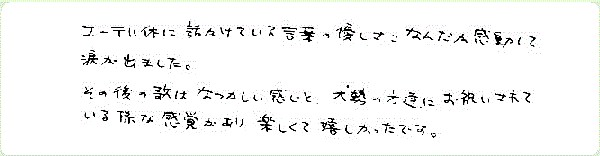 エーテル体に話かけている言葉の優しさになんだか感動して
涙が出ました。
その後の歌はなつかしい感じと、大勢の方達にお祝いされて
いる様な感覚があり楽しくて嬉しかったです。